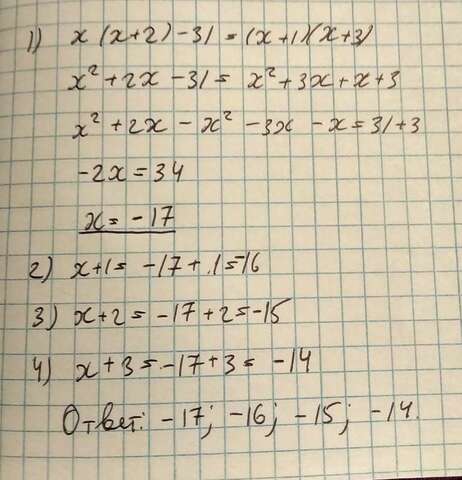 1) x(x+2)-31=(x+1)(x+3)
x²+2x-31= x²+3x+x+3
x²+2x-x²-3x-x=31+3
-2x=34
x=-17
2) x+1= -17+1=-16
3) x+2=-17+2=-15
4) x+3=-17+3= -14
Ответ: -17; -16; -15; -14.